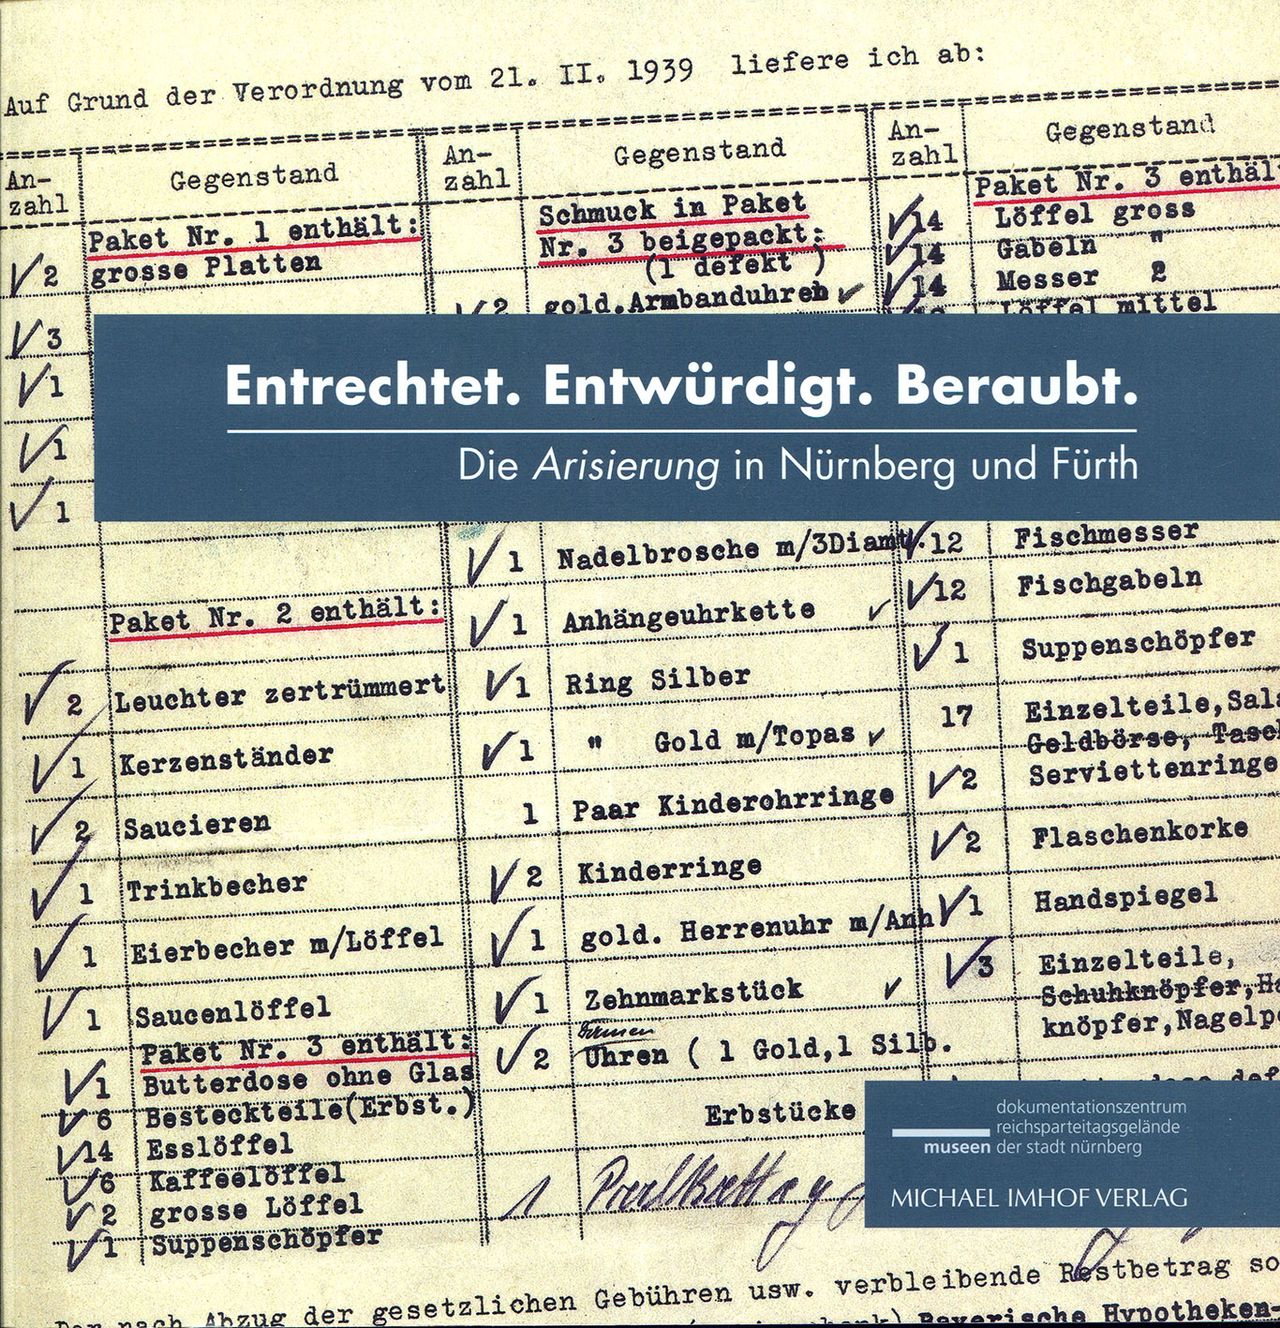 Auf Grund der Verordnung vom 21. II. 1939 liefere ich ab:
An-
zahl
Gegenstand
Paket Nr. 1 enthält:
2 grosse Platten
3
1
1
1
Paket Nr. 2 enthält:
2 Leuchter zertrümmert
1 Kerzenständer
2 Saucieren
1 Trinkbecher
1 Eierbecher m/Löffel
1 Saucenlöffel
Paket Nr. 3 enthält:
1 Butterdose ohne Glas
6 Besteckteile(Erbst.)
14 Esslöffel
6 Kaffeelöffel
2 grosse Löffel
1 Suppenschöpfer
An-
zahl
Gegenstand
Schmuck in Paket
Nr. 3 beigepackt:
(1 defekt )
2 gold.Armbanduhren
1 Nadelbrosche m/3Diamt.
1 Anhängeuhrkette
1 Ring Silber
1 " Gold m/Topas
1 Paar Kinderohrringe
2 Kinderringe
1 gold. Herrenuhr m/Anh
1 Zehnmarkstück
Damen
2 Uhren ( 1 Gold,1 Silb.
Erbstücke
1
An-
zahl
Gegenstand
Paket Nr. 3 enthäl
14 Löffel gross
14 Gabeln "
14 Messer
Löffel mittel
12 Fischmesser
12 Fischgabeln
1 Suppenschöpfer
17 Einzelteile,Sala
Geldbörse, Tasch
2 Serviettenringe
2 Flaschenkorke
1 Handspiegel
3 Einzelteile,
Schuhknöpfer,Ha
knöpfer,Nagelpo
Entrechtet. Entwürdigt. Beraubt.
Die Arisierung in Nürnberg und Fürth
dokumentationszentrum
reichsparteitagsgelände
museen der stadt nürnberg
MICHAEL IMHOF VERLAG
Der nach Abzug der gesetzlichen Gebühren usw. verbleibende Restbetrag so
Bayerische Hypotheken-